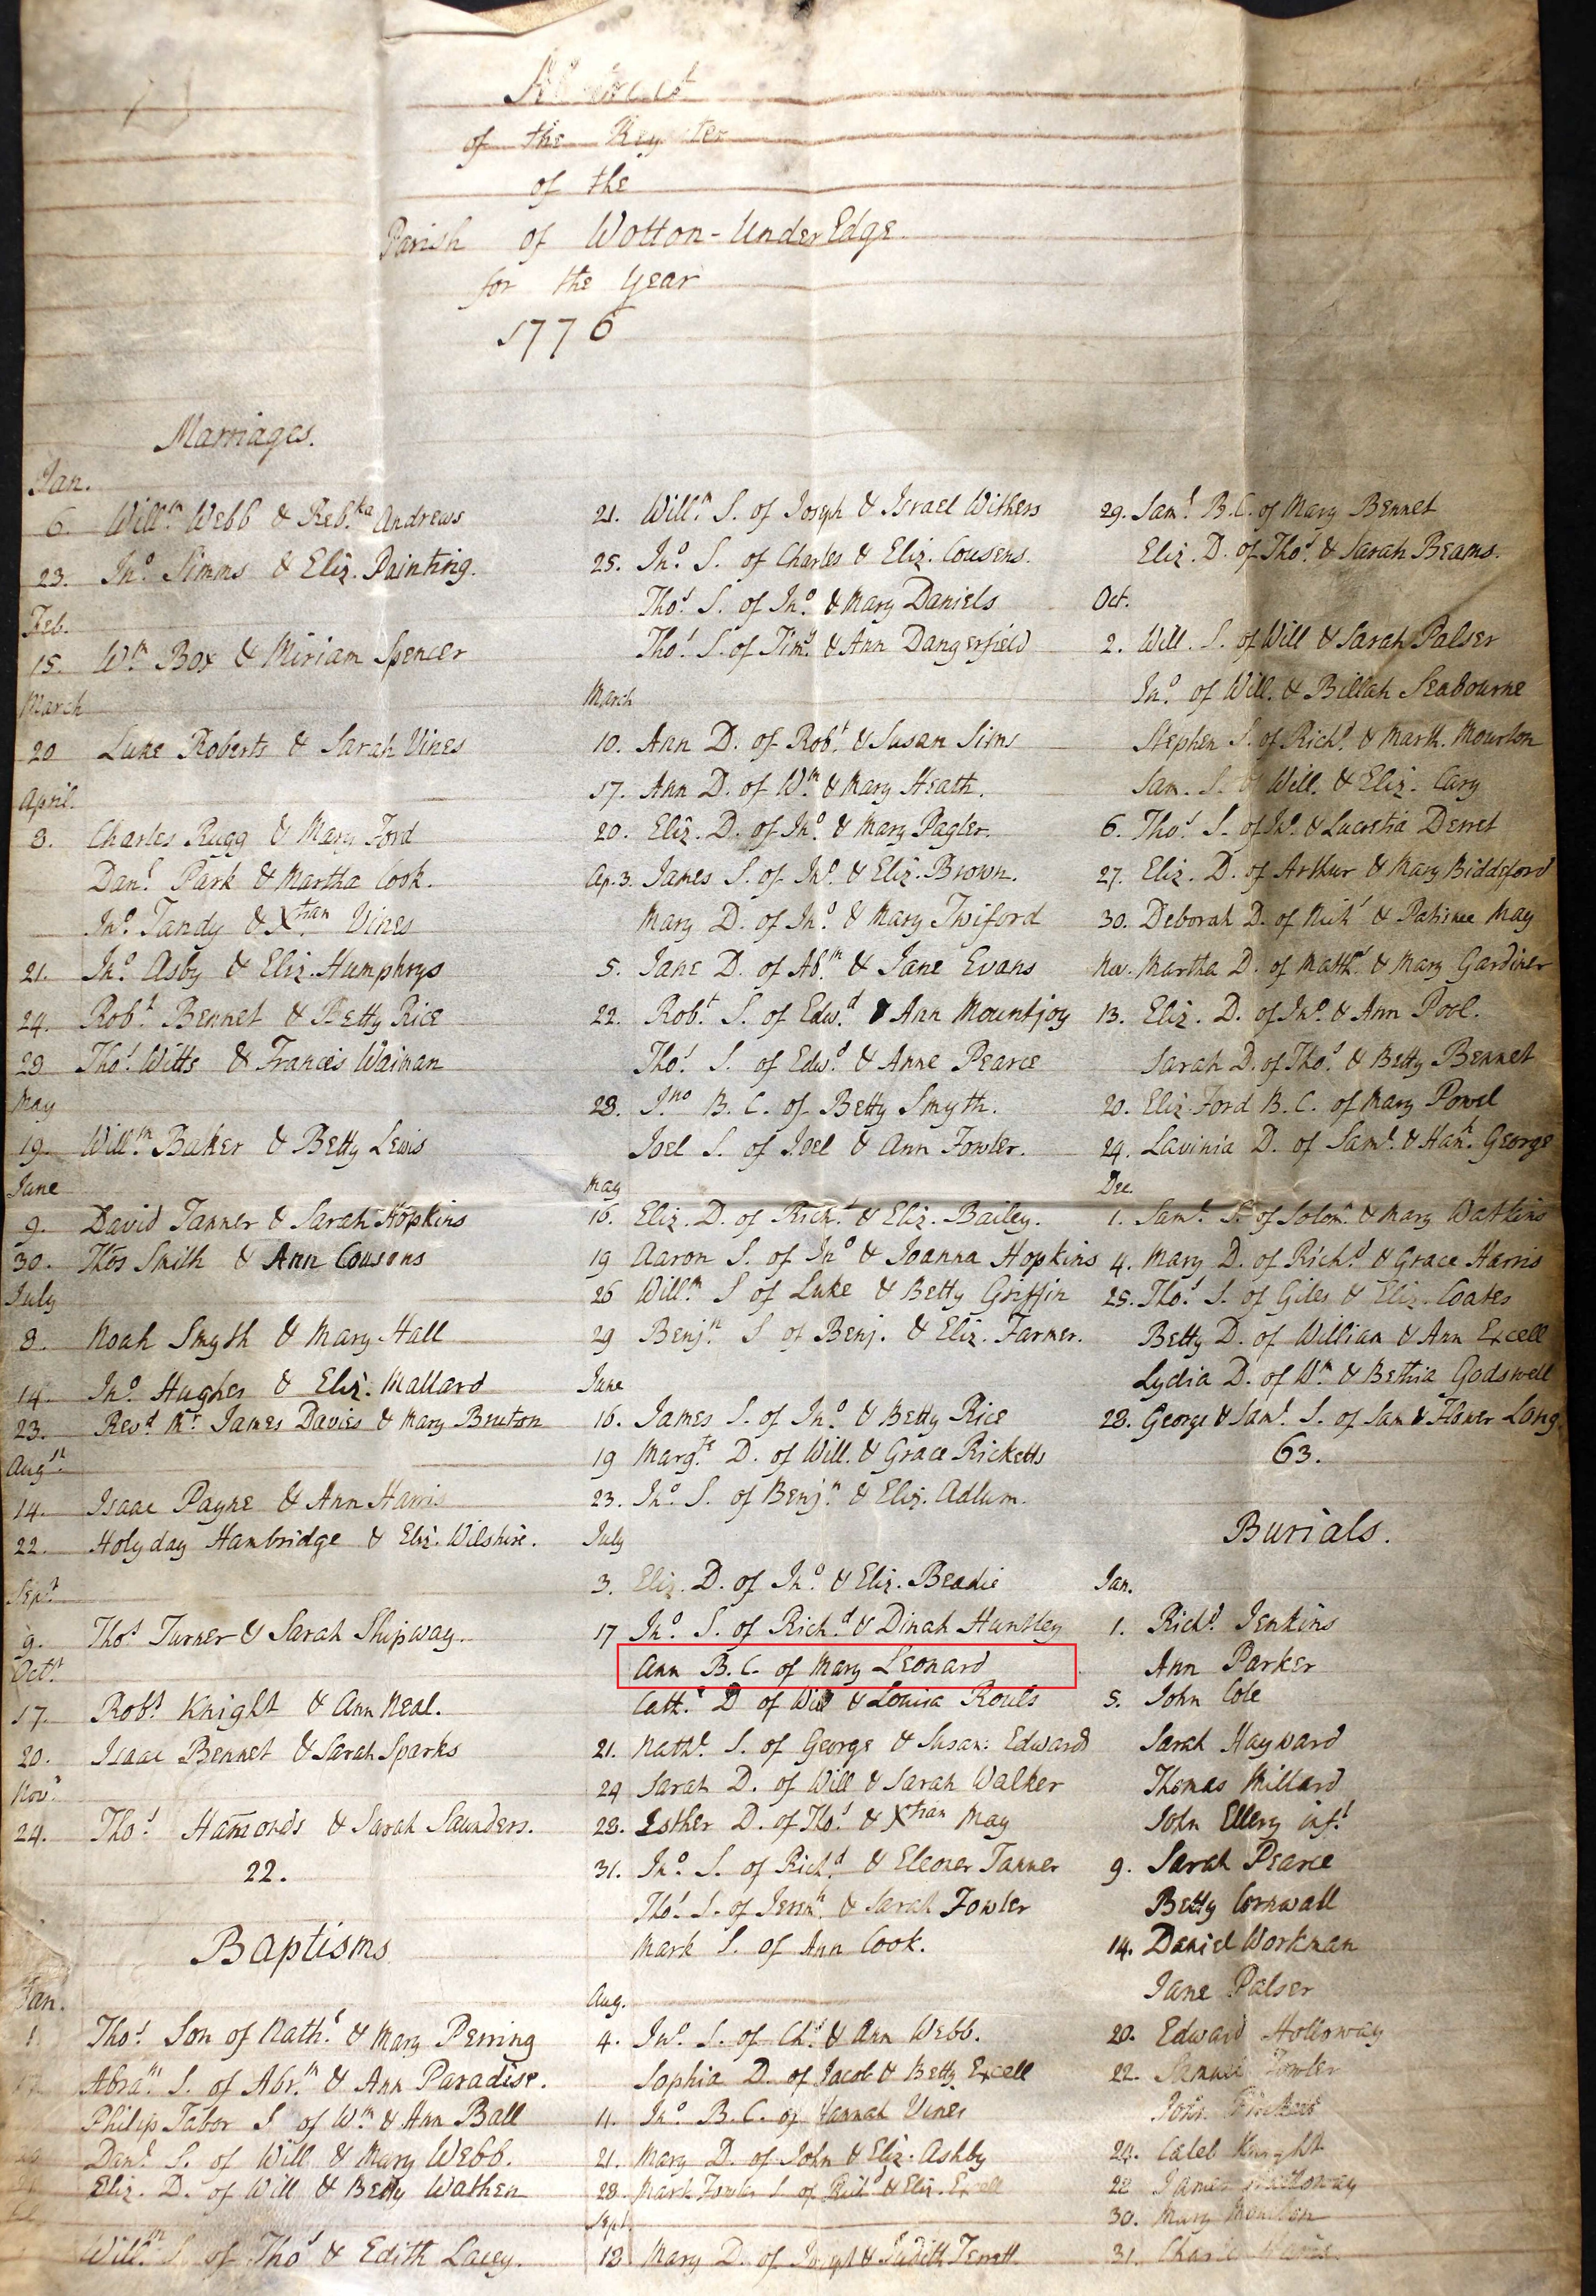 Abstract
of the Register
of the
Parish of Wotton-UnderEdge
for the Year
1776
Marriages.
Jan.
6. Will.m Webb & Reb.ka Andrews
23. Jn.o Simms & Eliz. Painting.
Feb.
15. W.m Box & Miriam Spencer
March
20 Luke Roberts & Sarah Vines
April.
8. Charles Rugg & Mary Ford
Dan.l Park & Martha Cook.
Jn.o Tandy & Xtian Vines
21. Jn.o Asby & Eliz. Humphrys
24. Rob.t Bennet & Betty Rice
29 Tho.s Witts & Francis Waiman
May
19. Will.m Baker & Betty Lewis
June
9. David Tanner & Sarah Hopkins
30. Thos Smith & Ann Cousons
July
8. Noah Smyth & Mary Hall
14. Jn.o Hughes & Eliz. Mallard
23. Rev.d Mr. James Davies & Mary Bruton
Aug.st
14. Isaac Payne & Ann Harris
22. Holyday Hambridge & Eliz. Wilshire.
Sept.
9. Tho.s Turner & Sarah Shipway.
Oct.r
17. Rob.t Knight & Ann Neal.
20. Isaac Bennet & Sarah Sparks
Nov.r
24. Tho.s Hamonds & Sarah Saunders.
22.
Baptisms
Jan.
1 Tho.s Son of Nath.l & Mary Perring
Abra.m S. of Abr.m & Ann Paradise.
Philip Tabor S. of W.m & Ann Ball
Dan.l S. of Will & Mary Webb.
Eliz. D. of Will & Betty Wathen
Will.m S. of Tho.s & Edith Lacey.
21. Will.m S. of Joseph & Israel Withers
25. Jn.o S. of Charles & Eliz. Cousens.
Tho.s S. of Jn.o & Mary Daniels
Tho.s S. of Tim.y & Ann Dangerfield
March
10. Ann D. of Rob.t & Susan Sims
17. Ann D. of W.m & Mary Heath.
20. Eliz. D. of Jn.o & Mary Pagler.
Ap. 3. James S. of Jn.o & Eliz. Brown.
Mary D. of Jn.o & Mary Twiford
5. Jane D. of Ab.m & Jane Evans
22. Rob.t S. of Edw.d & Ann Mountjoy
Tho.s S. of Edw.d & Anne Pearce
28. J.no B. C. of Betty Smyth.
Joel S. of Joel & Ann Fowler.
May
16. Eliz. D. of Rich.d & Eliz. Bailey.
19 Aaron S. of Jn.o & Joanna Hopkins
26 Will.m S of Luke & Betty Griffin
29 Benj.n S of Benj. & Eliz. Farmer.
June
16. James S. of Jn.o & Betty Rice
19 Marg.te D. of Will. & Grace Ricketts
23. Jn.o S. of Benj.n & Eliz. Adlum.
July
3. Eliz. D. of Jn.o & Eliz. Beadie
17 Jn.o S. of Rich.d & Dinah Huntley
Ann B.C. of Mary Leonard
Cath.e D of Will & Louisa Rouls
21. Nath.l S. of George & Susan: Edwards
24 Sarah D. of Will & Sarah Walker
28. Esther D. of Tho.s & Xtian May
31. Jn.o S. of Rich.d & Eleoner Tanner
Tho.s S. of Jerem.h & Sarah Fowler
Mark S. of Ann Cook.
Aug.
4. Jn.o S. of Ch.s & Ann Webb.
Sophia D. of Jacob & Betty Excell
11. Jn.o B.C. of Hannah Vines
21. Mary D. of John & Eliz. Ashby
28. Mark Fowler S. of Rich.d & Eliz. Excell
Sept.
18 Mary D. of Joseph & Judith Terrett
29. Sam.l B.C. of Mary Bennet
Eliz. D. of Tho.s & Sarah Beams.
Oct.
2. Will. S. of Will & Sarah Palser
Jn.o of Will. & Billah Seabourne
Stephen S. of Rich.d & Marth. Mourton
Sam. S. of Will. & Eliz. Cary
6. Tho.s S. of Jn.o & Lucretia Derret
27. Eliz. D. of Arthur & Mary Biddeford
30. Deborah D. of Nich.s & Patience May
Nov. Martha D. of Matth.w & Mary Gardiner
13. Eliz. D. of Jn.o & Ann Pool.
Sarah D. of Tho.s & Betty Bennet
20. Eliz. Ford B.C. of Mary Powel
24. Lavinia D. of Sam.l & Han.h George
Dec.
1. Sam.l S. of Solom.n & Mary Watkins
4. Mary D. of Rich.d & Grace Harris
25. Tho.s S. of Giles & Eliz. Coates
Betty D. of William & Ann Excell
Lydia D. of W.m & Bethia Godswell
28. George & Sam.l S. of Sam & Flower Long.
63.
Burials.
Jan.
1. Rich.d Jenkins
Ann Parker
5. John Cole
Sarah Hayward
Thomas Millard
John Ellery inf.t
9. Sarah Pearce
Betty Cornwall
14. Daniel Workman
Jane Palser
20. Edward Holloway
22. Samuel Fowler
John
24. Caleb Knight
28 James Holloway
30. Mary
31.